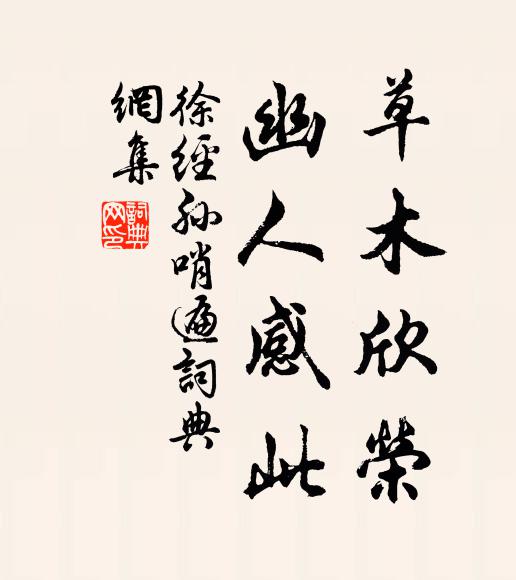 草木欣榮
幽人感此
徐經孫哨遍詞典
網集
詞典
网印